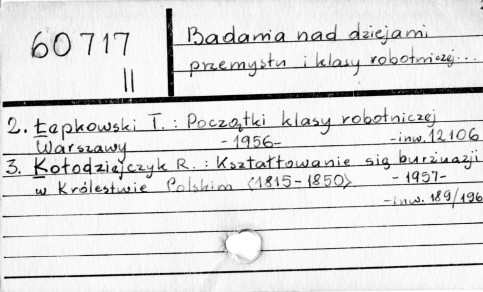 60717
II
Badania nad dziejami
przemysłu i klasy robotniczej...
2. Łapkowski T. : Początki klasy robotniczej
Warszawy -1956- -inw. 12106
3. Kołodziejczyk R. : Kształtowanie się burżuazji
w Królestwie Polskim <1815-1850> -1957-
-inw. 189/196